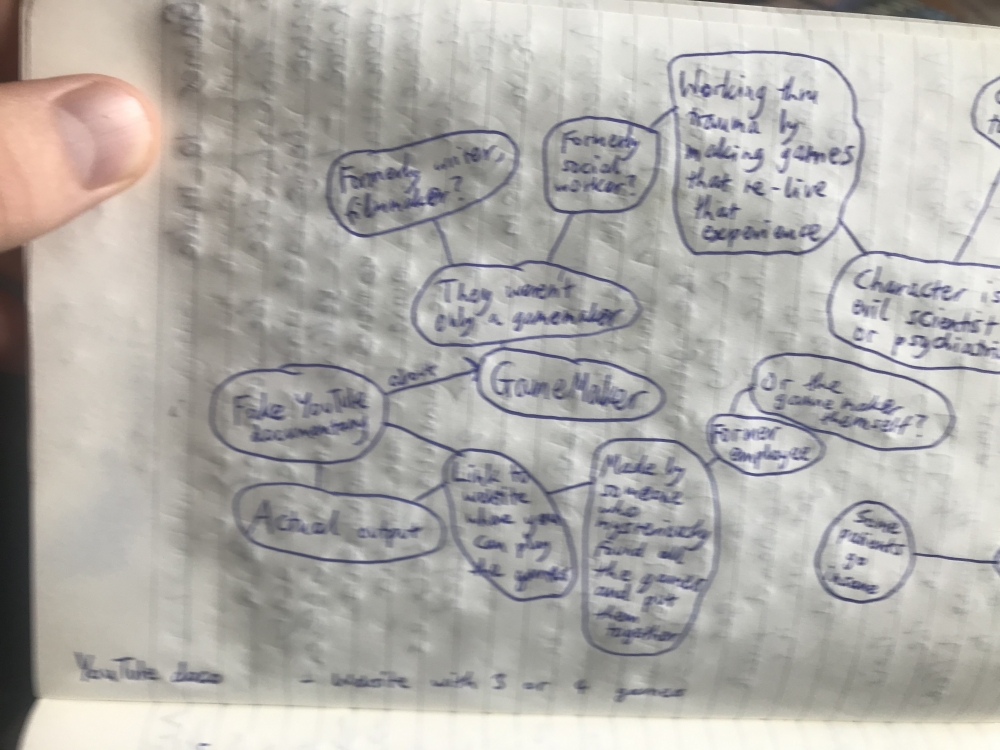 Formerly writer,
filmmaker?
Formerly
social
worker?
Working thru
trauma by
making games
that re-live
that
experience
They weren't
only a gamemaker
Character is
evil scientist
or psychiatri
Fake YouTube
documentary
about
GameMaker
Or the
game maker
themself?
Former
employee
Actual output
Link to
website
where you
can play
the games
Made by
someone
who
mysteriously
found all
the games
and put
them
together
Some
patients
go
insane
YouTube doco
- website with 3 or 4 games